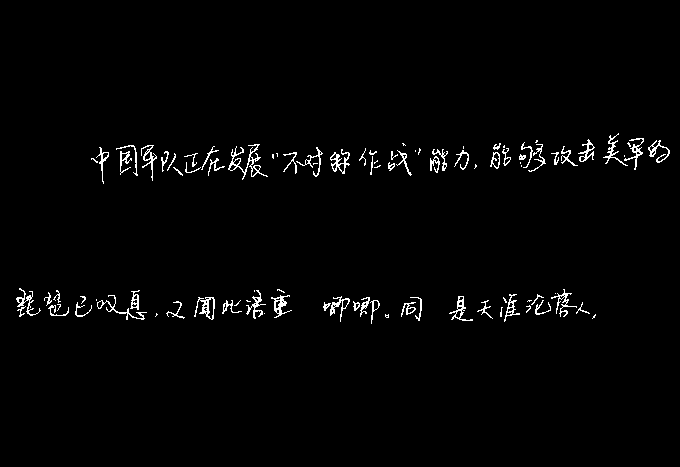 中国军队正在发展"不对称作战"能力,能够攻击美军的
琵琶已叹息,又闻此语重 唧唧。同 是天涯沦落人,